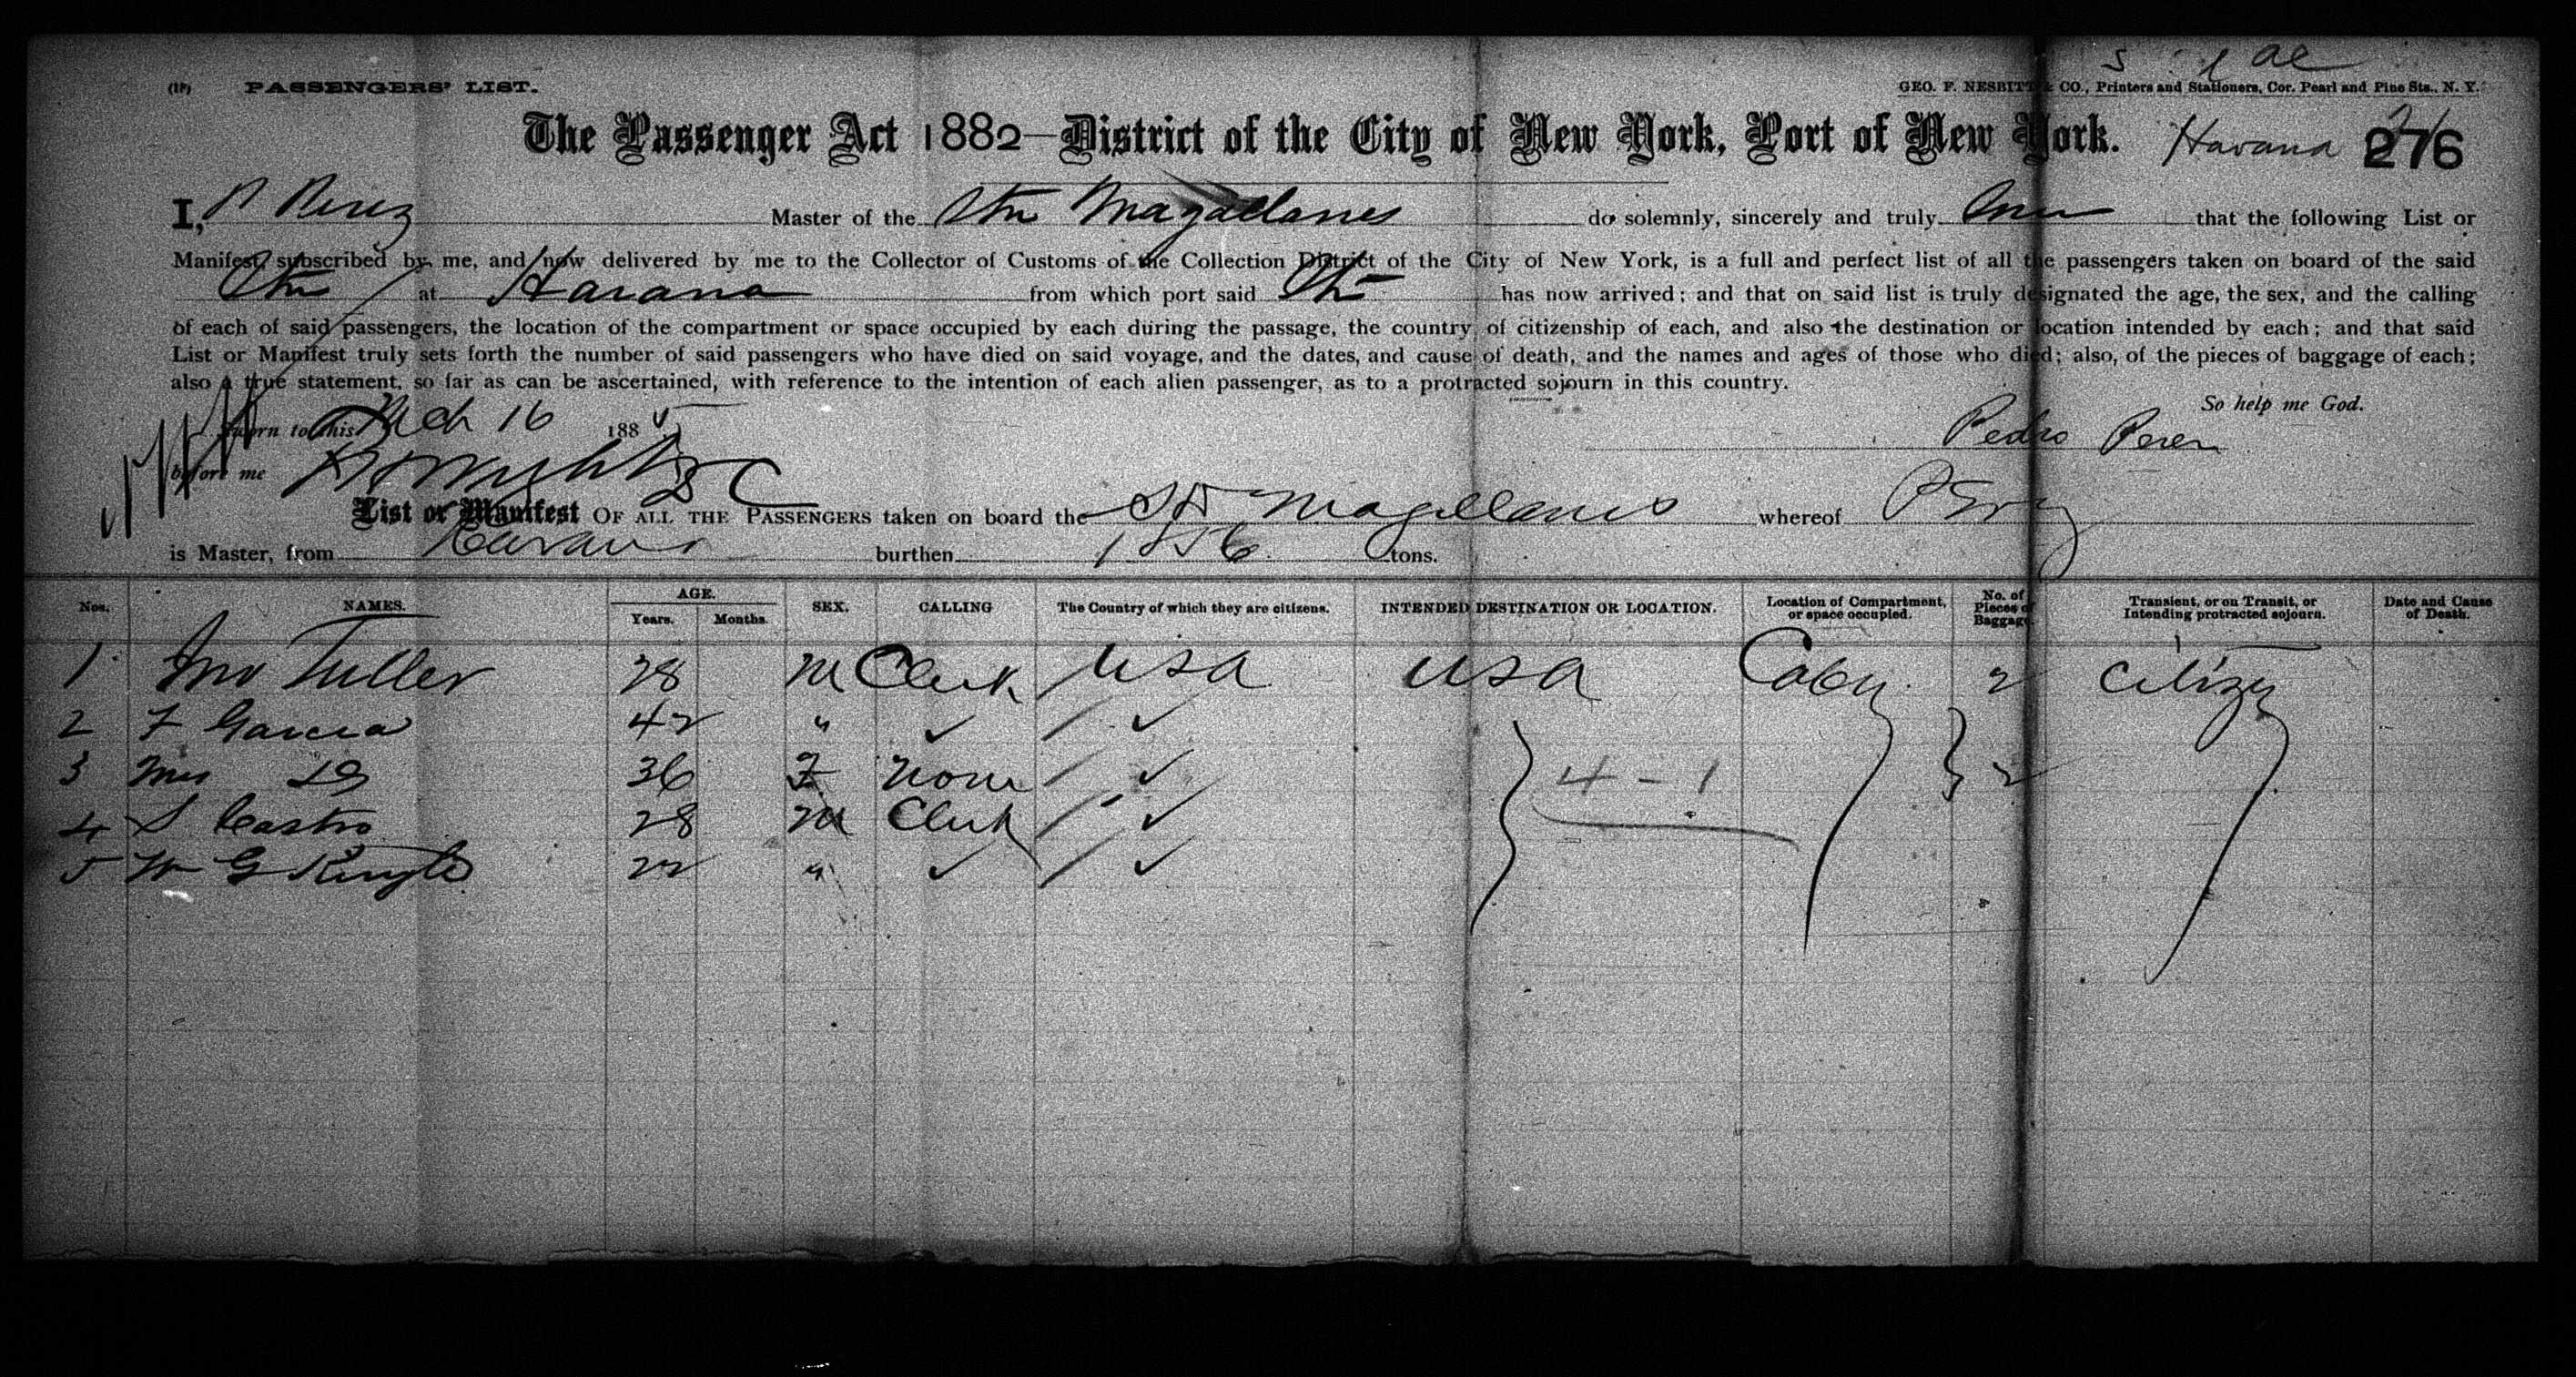 (1F) PASSENGERS' LIST.
GEO. F. NESBITT & CO., Printers and Stationers, Cor. Pearl and Pine Sts., N. Y.
The Passenger Act 1882—District of the City of New York, Port of New York. Havana 276
I, P Perez Master of the Str Magallanes do solemnly, sincerely and truly that the following List or
Manifest, subscribed by me, and now delivered by me to the Collector of Customs of the Collection District of the City of New York, is a full and perfect list of all the passengers taken on board of the said
Str at Havana from which port said Str has now arrived; and that on said list is truly designated the age, the sex, and the calling
of each of said passengers, the location of the compartment or space occupied by each during the passage, the country of citizenship of each, and also the destination or location intended by each; and that said
List or Manifest truly sets forth the number of said passengers who have died on said voyage, and the dates, and cause of death, and the names and ages of those who died; also, of the pieces of baggage of each;
also a true statement, so far as can be ascertained, with reference to the intention of each alien passenger, as to a protracted sojourn in this country.
So help me God.
Sworn to this Mch 16 1885
Pedro Perez
before me D C
List or Manifest OF ALL THE PASSENGERS taken on board the SS Magallanes whereof P Perez
is Master, from Havana burthen 1856 tons.
Nos. NAMES. AGE. Years. Months. SEX. CALLING The Country of which they are citizens. INTENDED DESTINATION OR LOCATION. Location of Compartment, or space occupied. No. of Pieces of Baggage. Transient, or on Transit, or Intending protracted sojourn. Date and Cause of Death.
1 Jno Fuller 28 M Clerk USA USA Cabin 2 Citizen
2 F Garcia 42 " ✓ ✓
3 Mrs Do 36 F None ✓ 4 - 1 2
4 S Castro 28 M Clerk ✓
5 Wm G 22 " ✓ ✓